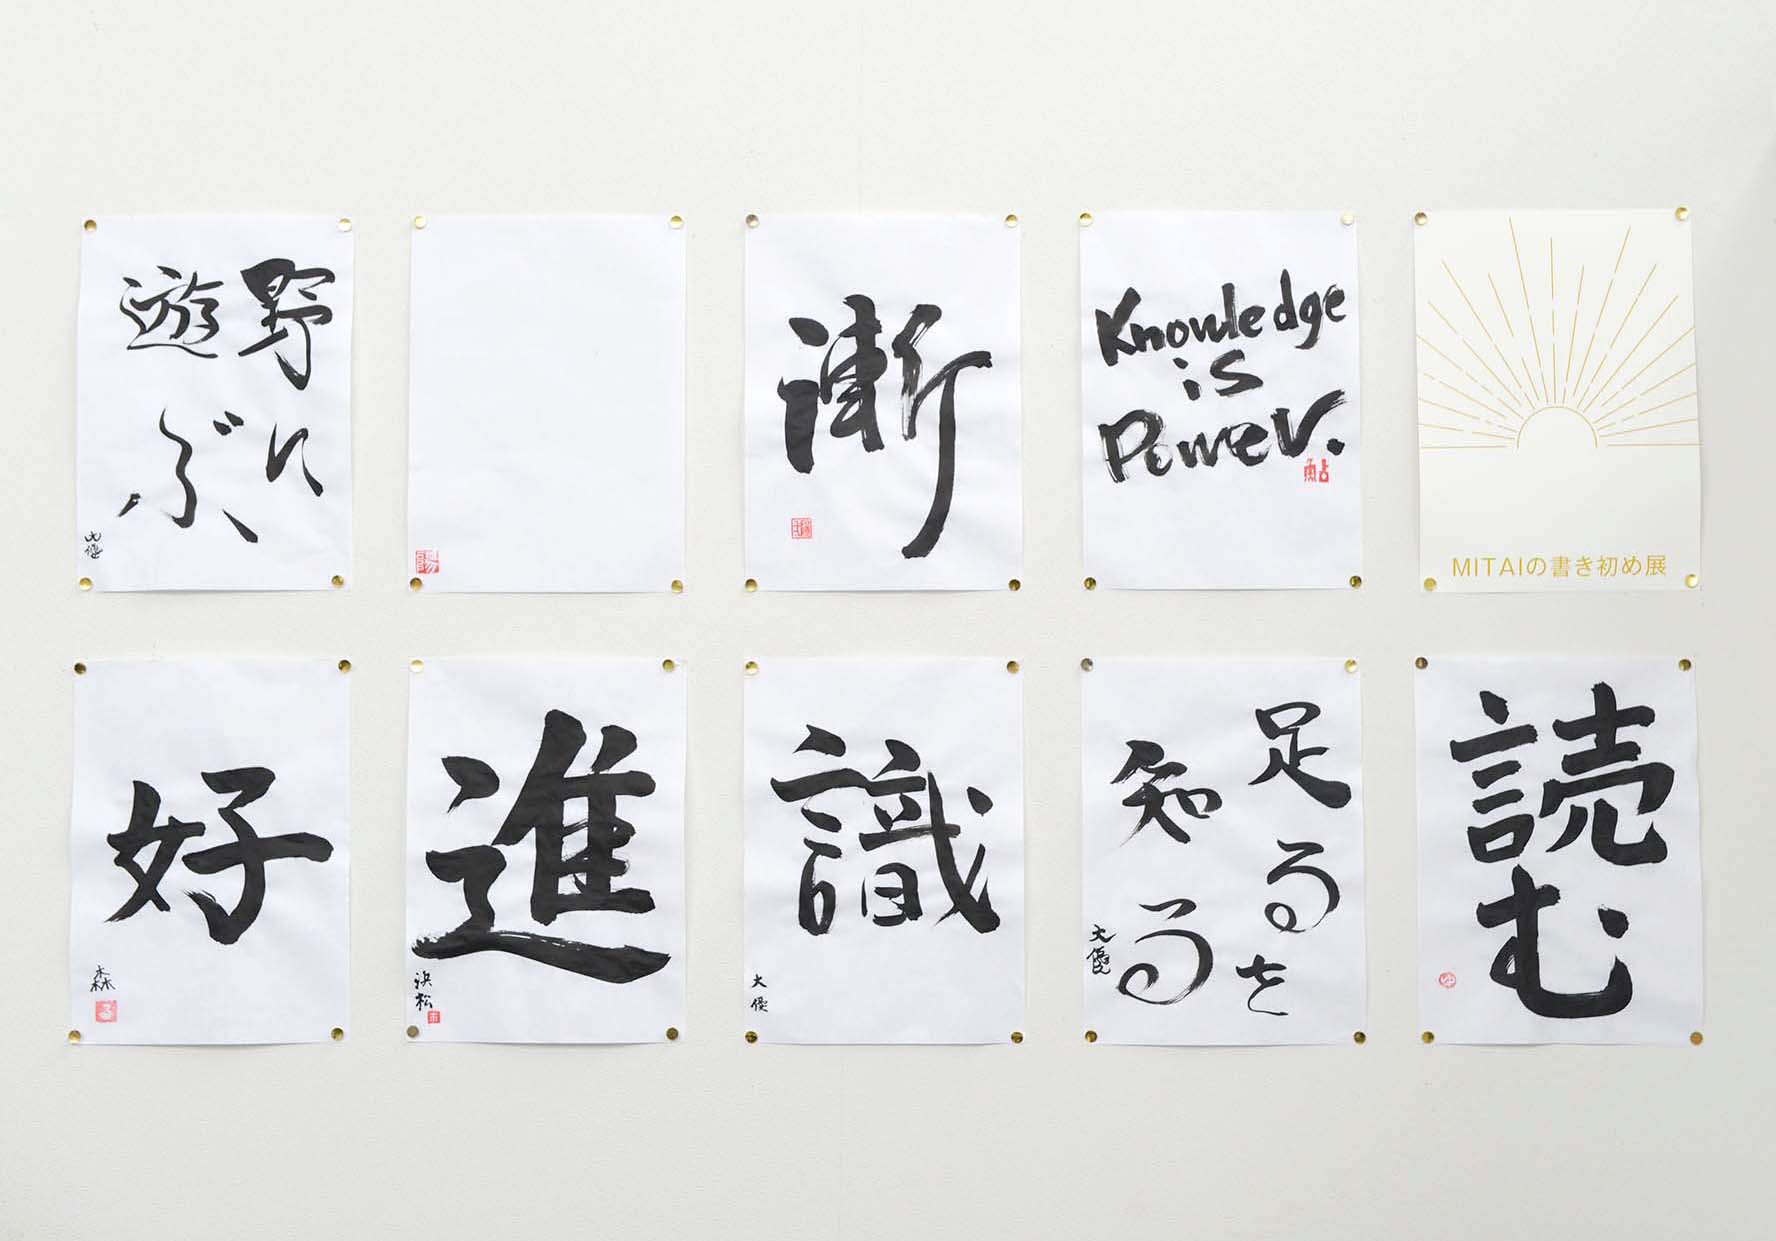 野に
遊ぶ
大優
漸
Knowledge
is
Power.
鮎
MITAIの書き初め展
好
森
進
浜松
識
大優
足るを
知る
大優
読む
ゆ